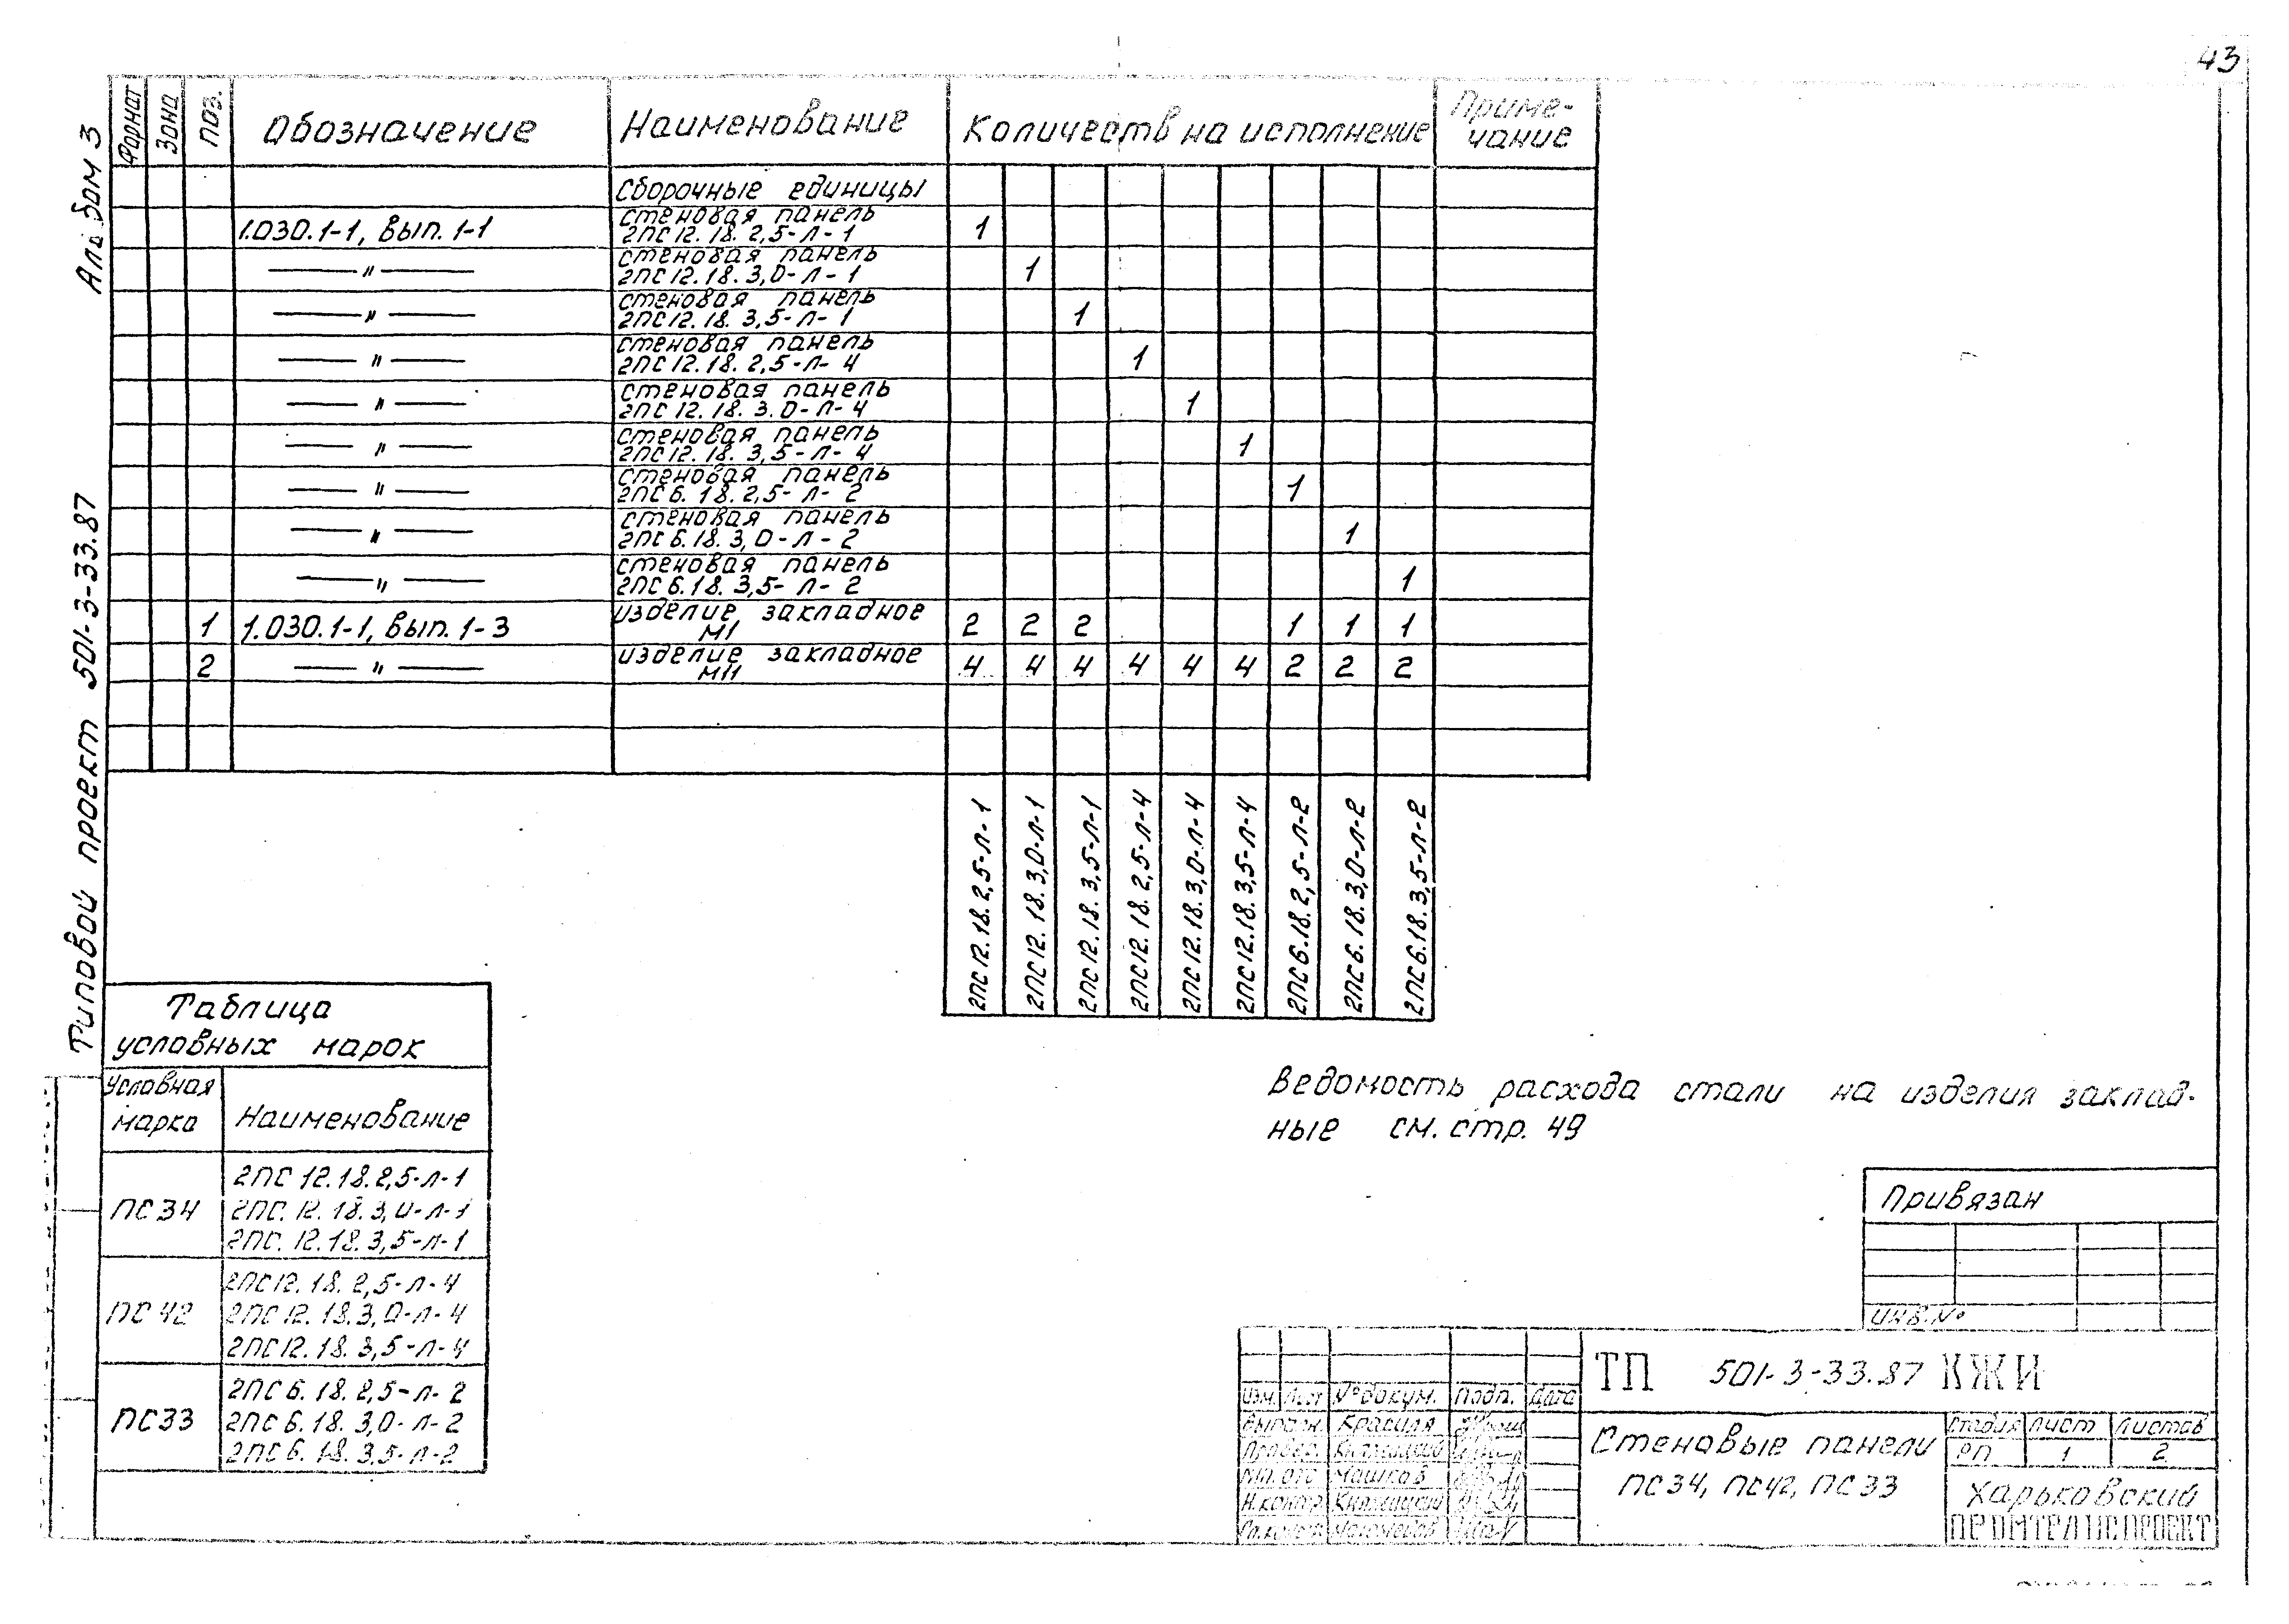 43
Альбом 3
Типовой проект 501-3-33.87
Формат Зона Поз. Обозначение Наименование Количеств на исполнение Приме-
чание
Сборочные единицы
1.030.1-1, вып. 1-1 стеновая панель
2ПС12.18.2,5-Л-1 1
—〃— стеновая панель
2ПС12.18.3,0-Л-1 1
—〃— стеновая панель
2ПС12.18.3,5-Л-1 1
—〃— стеновая панель
2ПС12.18.2,5-Л-4 1
—〃— стеновая панель
2ПС12.18.3.0-Л-4 1
—〃— стеновая панель
2ПС12.18.3,5-Л-4 1
—〃— стеновая панель
2ПС6.18.2,5-Л-2 1
—〃— стеновая панель
2ПС6.18.3,0-Л-2 1
—〃— стеновая панель
2ПС6.18.3,5-Л-2 1
1 1.030.1-1, вып. 1-3 изделие закладное
М1 2 2 2 1 1 1
2 —〃— изделие закладное
М11 4 4 4 4 4 4 2 2 2
2ПС12.18.2,5-Л-1
2ПС12.18.3,0-Л-1
2ПС12.18.3,5-Л-1
2ПС12.18.2,5-Л-4
2ПС12.18.3,0-Л-4
2ПС12.18.3,5-Л-4
2ПС6.18.2,5-Л-2
2ПС6.18.3,0-Л-2
2ПС6.18.3,5-Л-2
Таблица
условных марок
Условная
марка Наименование
ПС34
2ПС 12.18.2,5-Л-1
2ПС.12.18.3,0-Л-1
2ПС.12.18.3,5-Л-1
ПС42
2ПС12.18.2,5-Л-4
2ПС12.18.3,0-Л-4
2ПС12.18.3,5-Л-4
ПС33
2ПС6.18.2,5-Л-2
2ПС6.18.3,0-Л-2
2ПС6.18.3,5-Л-2
Ведомость расхода стали на изделия заклад-
ные см. стр. 49
Привязан
Инв.№
ТП 501-3-33.87 КЖИ
Изм. Лист №докум. Подп. Дата
Выполн. Красиля
Провер. Княжицкий
Машков
Н.контр. Княжицкий
Стеновые панели
ПС34, ПС42, ПС33
Стадия Лист Листов
РП 1 2
Харьковский
ПРОМТРАНСПРОЕКТ